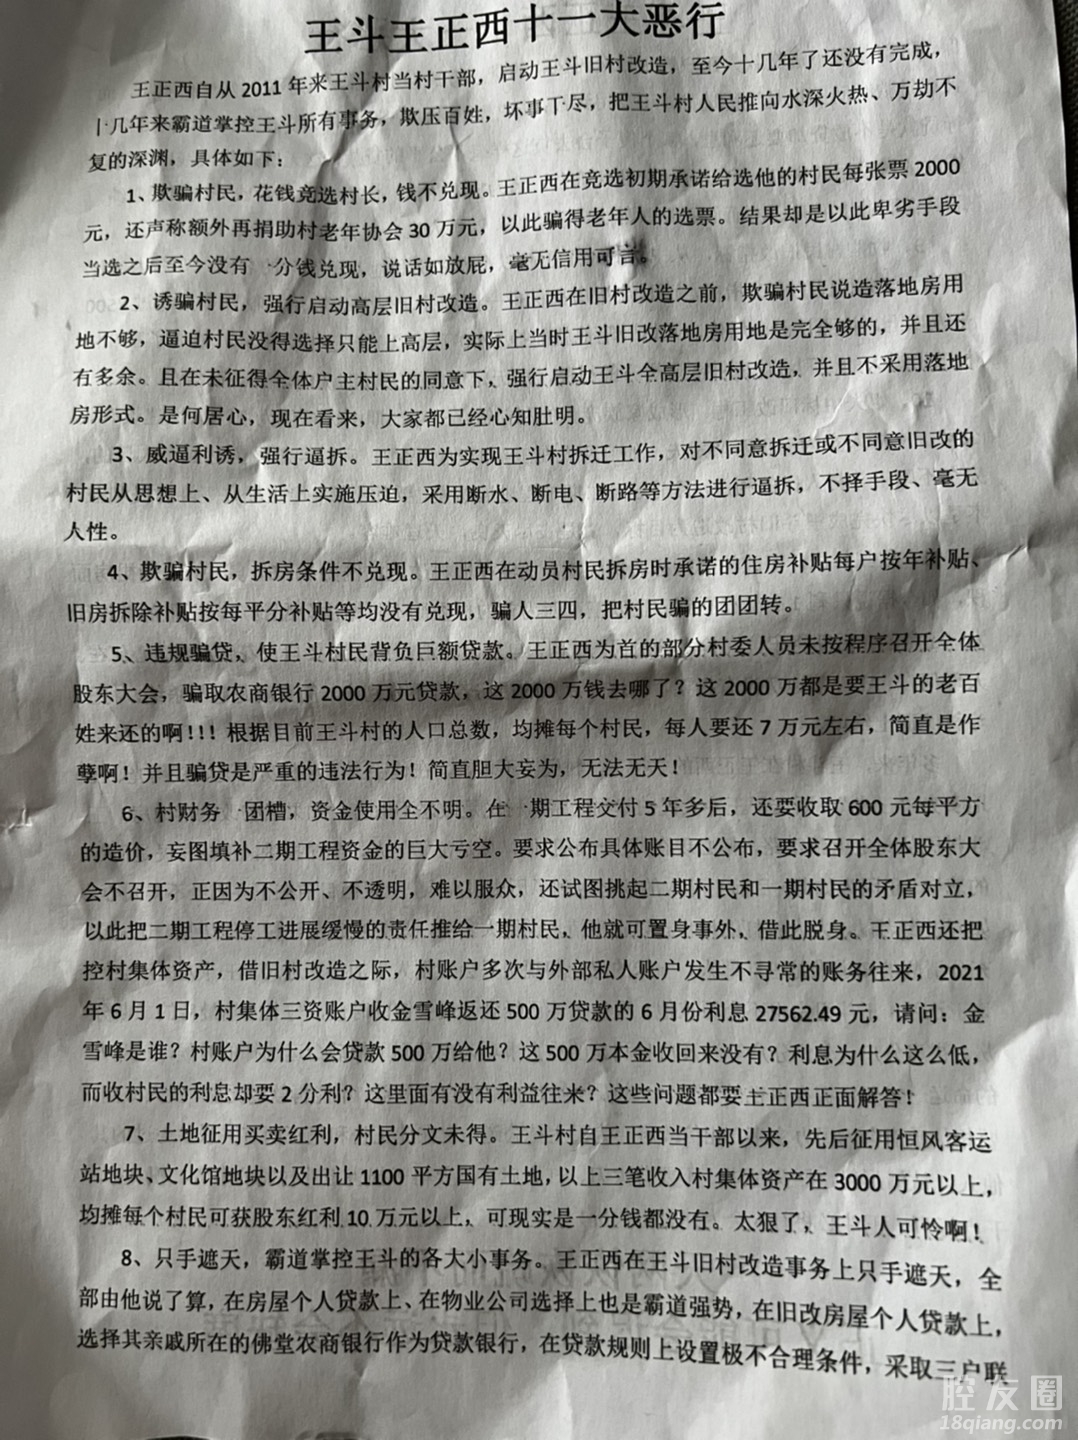 王斗王正西十一大恶行
王正西自从2011年来王斗村当村干部，启动王斗旧村改造，至今十几年了还没有完成，
十几年来霸道掌控王斗所有事务，欺压百姓，坏事干尽，把王斗村人民推向水深火热、万劫不
复的深渊，具体如下：
1、欺骗村民，花钱竞选村长，钱不兑现。王正西在竞选初期承诺给选他的村民每张票2000
元，还声称额外再捐助村老年协会30万元，以此骗得老年人的选票。结果却是以此卑劣手段
当选之后至今没有一分钱兑现，说话如放屁，毫无信用可言。
2、诱骗村民，强行启动高层旧村改造。王正西在旧村改造之前，欺骗村民说造落地房用
地不够，逼迫村民没得选择只能上高层，实际上当时王斗旧改落地房用地是完全够的，并且还
有多余。且在未征得全体户主村民的同意下，强行启动王斗全高层旧村改造，并且不采用落地
房形式。是何居心，现在看来，大家都已经心知肚明。
3、威逼利诱，强行逼拆。王正西为实现王斗村拆迁工作，对不同意拆迁或不同意旧改的
村民从思想上、从生活上实施压迫，采用断水、断电、断路等方法进行逼拆，不择手段、毫无
人性。
4、欺骗村民，拆房条件不兑现。王正西在动员村民拆房时承诺的住房补贴每户按年补贴、
旧房拆除补贴按每平分补贴等均没有兑现，骗人三四，把村民骗的团团转。
5、违规骗贷，使王斗村民背负巨额贷款。王正西为首的部分村委人员未按程序召开全体
股东大会，骗取农商银行2000万元贷款，这2000万钱去哪了？这2000万都是要王斗的老百
姓来还的啊！！！根据目前王斗村的人口总数，均摊每个村民，每人要还7万元左右，简直是作
孽啊！并且骗贷是严重的违法行为！简直胆大妄为，无法无天！
6、村财务一团槽，资金使用全不明。在一期工程交付5年多后，还要收取600元每平方
的造价，妄图填补二期工程资金的巨大亏空。要求公布具体账目不公布，要求召开全体股东大
会不召开，正因为不公开、不透明，难以服众，还试图挑起二期村民和一期村民的矛盾对立，
以此把二期工程停工进展缓慢的责任推给一期村民，他就可置身事外，借此脱身。王正西还把
控村集体资产，借旧村改造之际，村账户多次与外部私人账户发生不寻常的账务往来，2021
年6月1日，村集体三资账户收金雪峰返还500万贷款的6月份利息27562.49元，请问：金
雪峰是谁？村账户为什么会贷款500万给他？这500万本金收回来没有？利息为什么这么低，
而收村民的利息却要2分利？这里面有没有利益往来？这些问题都要王正西正面解答！
7、土地征用买卖红利，村民分文未得。王斗村自王正西当干部以来，先后征用恒风客运
站地块、文化馆地块以及出让1100平方国有土地，以上三笔收入村集体资产在3000万元以上，
均摊每个村民可获股东红利10万元以上，可现实是一分钱都没有。太狠了，王斗人可怜啊！
8、只手遮天，霸道掌控王斗的各大小事务。王正西在王斗旧村改造事务上只手遮天，全
部由他说了算，在房屋个人贷款上、在物业公司选择上也是霸道强势，在旧改房屋个人贷款上，
选择其亲戚所在的佛堂农商银行作为贷款银行，在贷款规则上设置极不合理条件，采取三户联
腔友圈
18qiang.com